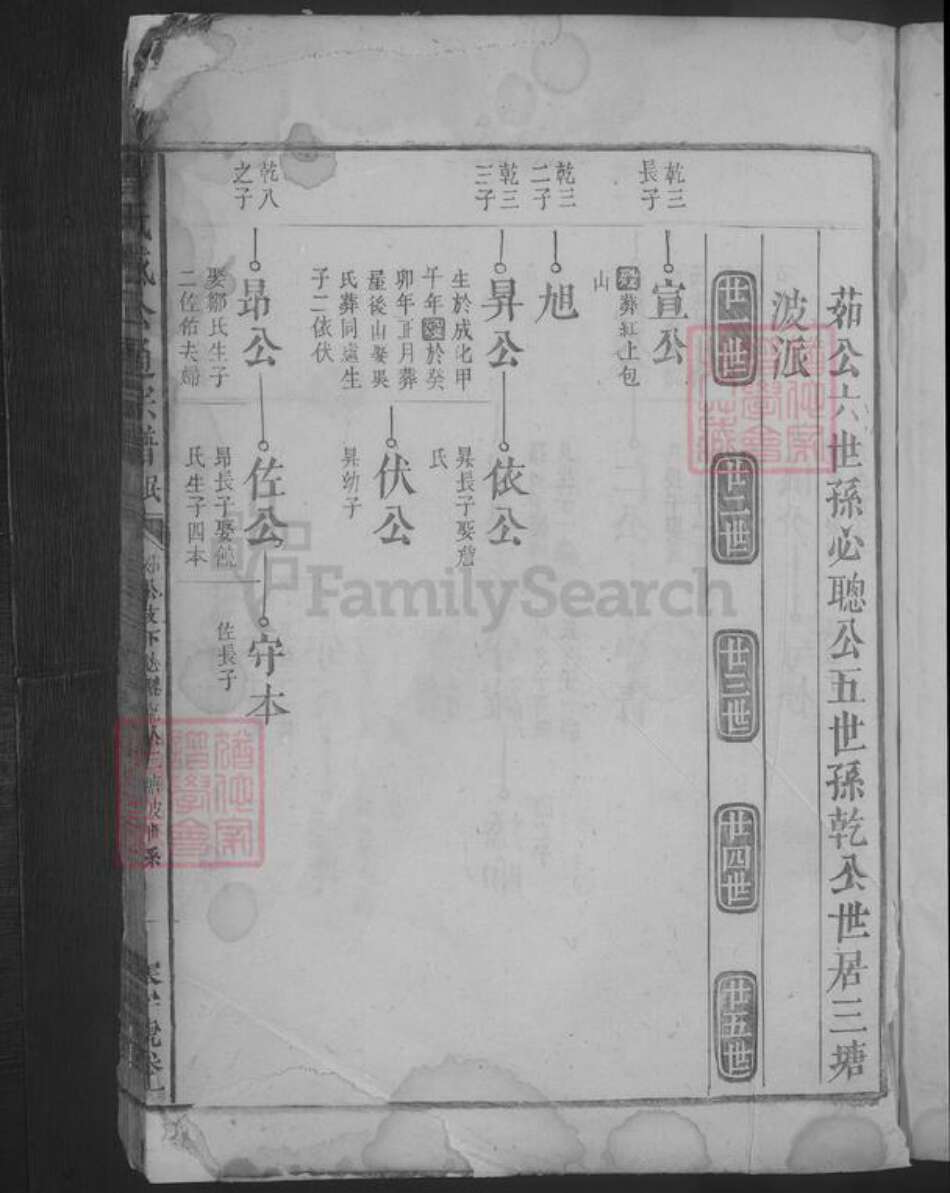 茹公六世孫必聰公五世孫乾公世居三塘
波派
廿一世
廿二世
廿三世
廿四世
廿五世
乾三
長子
宣公
歿葬紅上包
山
乾三
二子
旭
乾三
三子
昇公
生於成化甲
午年歿於癸
卯年正月葬
屋後山娶吳
氏葬同遠生
子二依伏
依公
昇長子娶詹
氏
伏公
昇幼子
乾八
之子
昂公
娶鄒氏生子
二佐佑夫婦
佐公
昂長子娶
氏生子四本
守本
佐長子
公通宗譜
FamilySearch